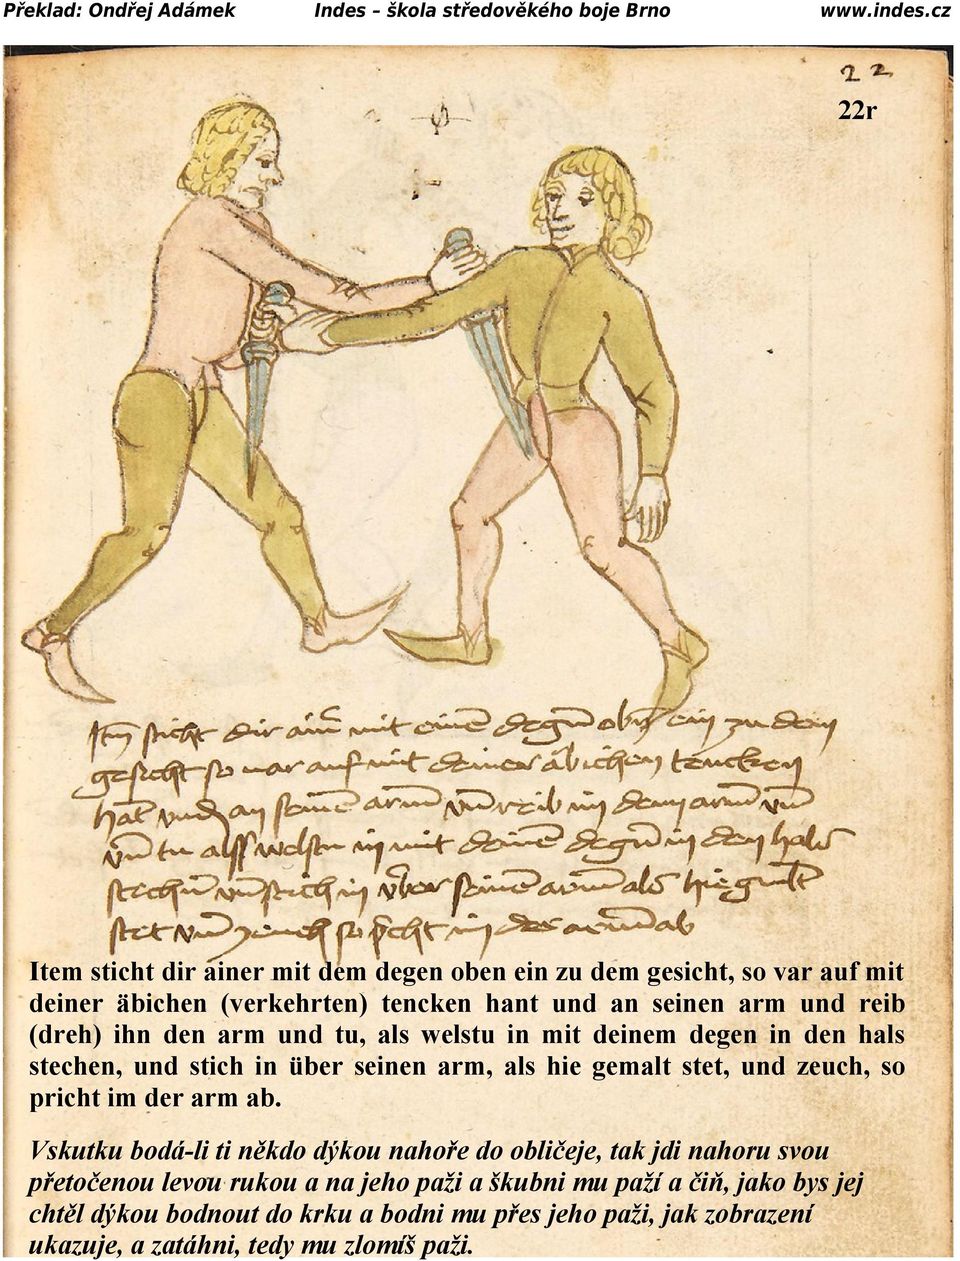 Překlad: Ondřej Adámek Indes – škola středověkého boje Brno www.indes.cz
22
22r
Itm sticht dir ainr mit einē degn obn ein zu dem
gesicht so var auf mit deiner äbichen tencken
hāt vnd an seinē arm vn reib im dem arm vn
vn tu alss welstu in mit deinē degn in den hals
stechn vn stich in vber seinē arm als hie gmalt
stet vn zeuch so pricht im der arm ab
Item sticht dir ainer mit dem degen oben ein zu dem gesicht, so var auf mit
deiner äbichen (verkehrten) tencken hant und an seinen arm und reib
(dreh) ihn den arm und tu, als welstu in mit deinem degen in den hals
stechen, und stich in über seinen arm, als hie gemalt stet, und zeuch, so
pricht im der arm ab.
Vskutku bodá-li ti někdo dýkou nahoře do obličeje, tak jdi nahoru svou
přetočenou levou rukou a na jeho paži a škubni mu paží a čiň, jako bys jej
chtěl dýkou bodnout do krku a bodni mu přes jeho paži, jak zobrazení
ukazuje, a zatáhni, tedy mu zlomíš paži.